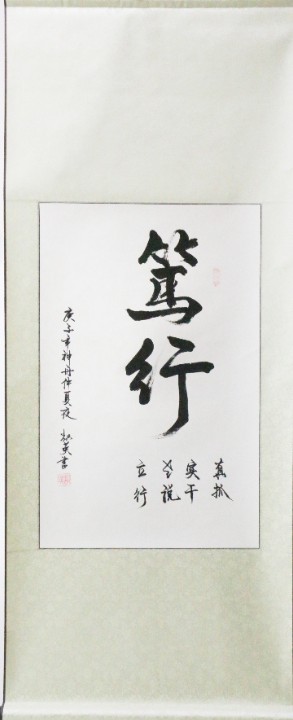 篤行
真抓
实干
说
立行
庚子年神州仲夏夜 英書